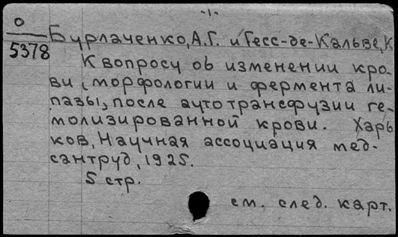 -1-
О
5378
Бурлаченко, А.Г. и Гесс-де-Кальве, К
К вопросу об изменении кро-
ви, морфологии и фермента ли-
пазы, после аутотрансфузии ге-
молизированной крови. Харь
ков, Научная ассоциация мед-
сантруд, 1925.
5 стр.
см. след. карт.